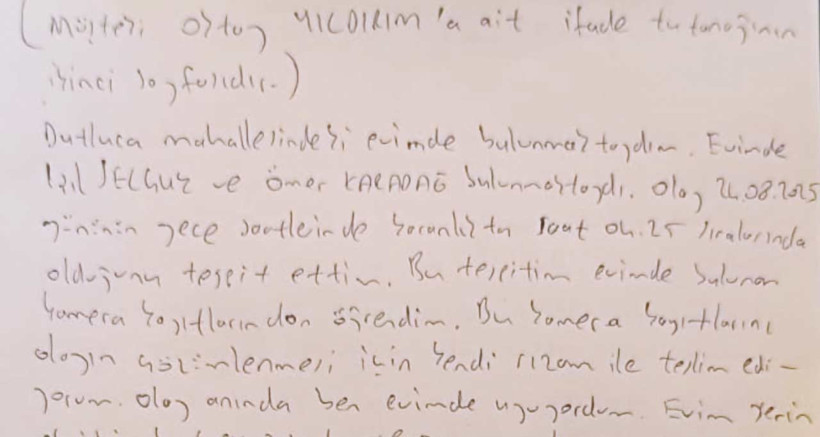 (Müşteki Oktay YILDIRIM'a ait ifade tutanağının
ikinci sayfasıdır.)
Dutluca mahallesindeki evimde bulunmaktaydım. Evimde
ve Ömer KARADAĞ bulunmaktaydı. Olay 24.08.2025
gününün gece saatleinde karanlıkta saat 04.25 sıralarında
olduğunu tespit ettim. Bu tespitim evimde bulunan
kamera kayıtlarından öğrendim. Bu kamera kayıtlarını
olayın çözümlenmesi için kendi rızam ile teslim edi-
yorum. Olay anında ben evimde uyuyordum. Evim yerin